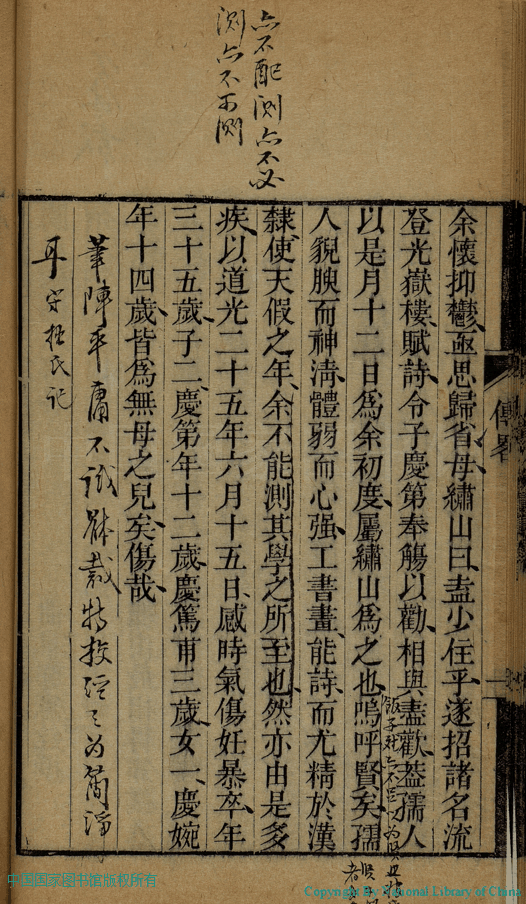 亦不配測亦不必
測亦不可測
余懷抑鬱亟思歸省母繡山曰盍少住乎遂招諸名流
登光嶽樓賦詩令子慶第奉觴以勸相與盡歡葢孺人
以是月十二日爲余初度屬繡山爲之也嗚呼賢矣孺
人貌腴而神淸體弱而心强工書畫能詩而尤精於漢
隸使天假之年余不能測其學之所至也然亦由是多
疾以道光二十五年六月十五日感時氣傷妊暴卒年
三十五歲子二慶第年十二歲慶篤甫三歲女一慶婉
年十四歲皆爲無母之兒矣傷哉
筆陣平庸不識體裁特較逕逕爲簡淨
耳 守拙氏記
傳畧
中国国家图书馆版权所有
Copyright By National Library of China